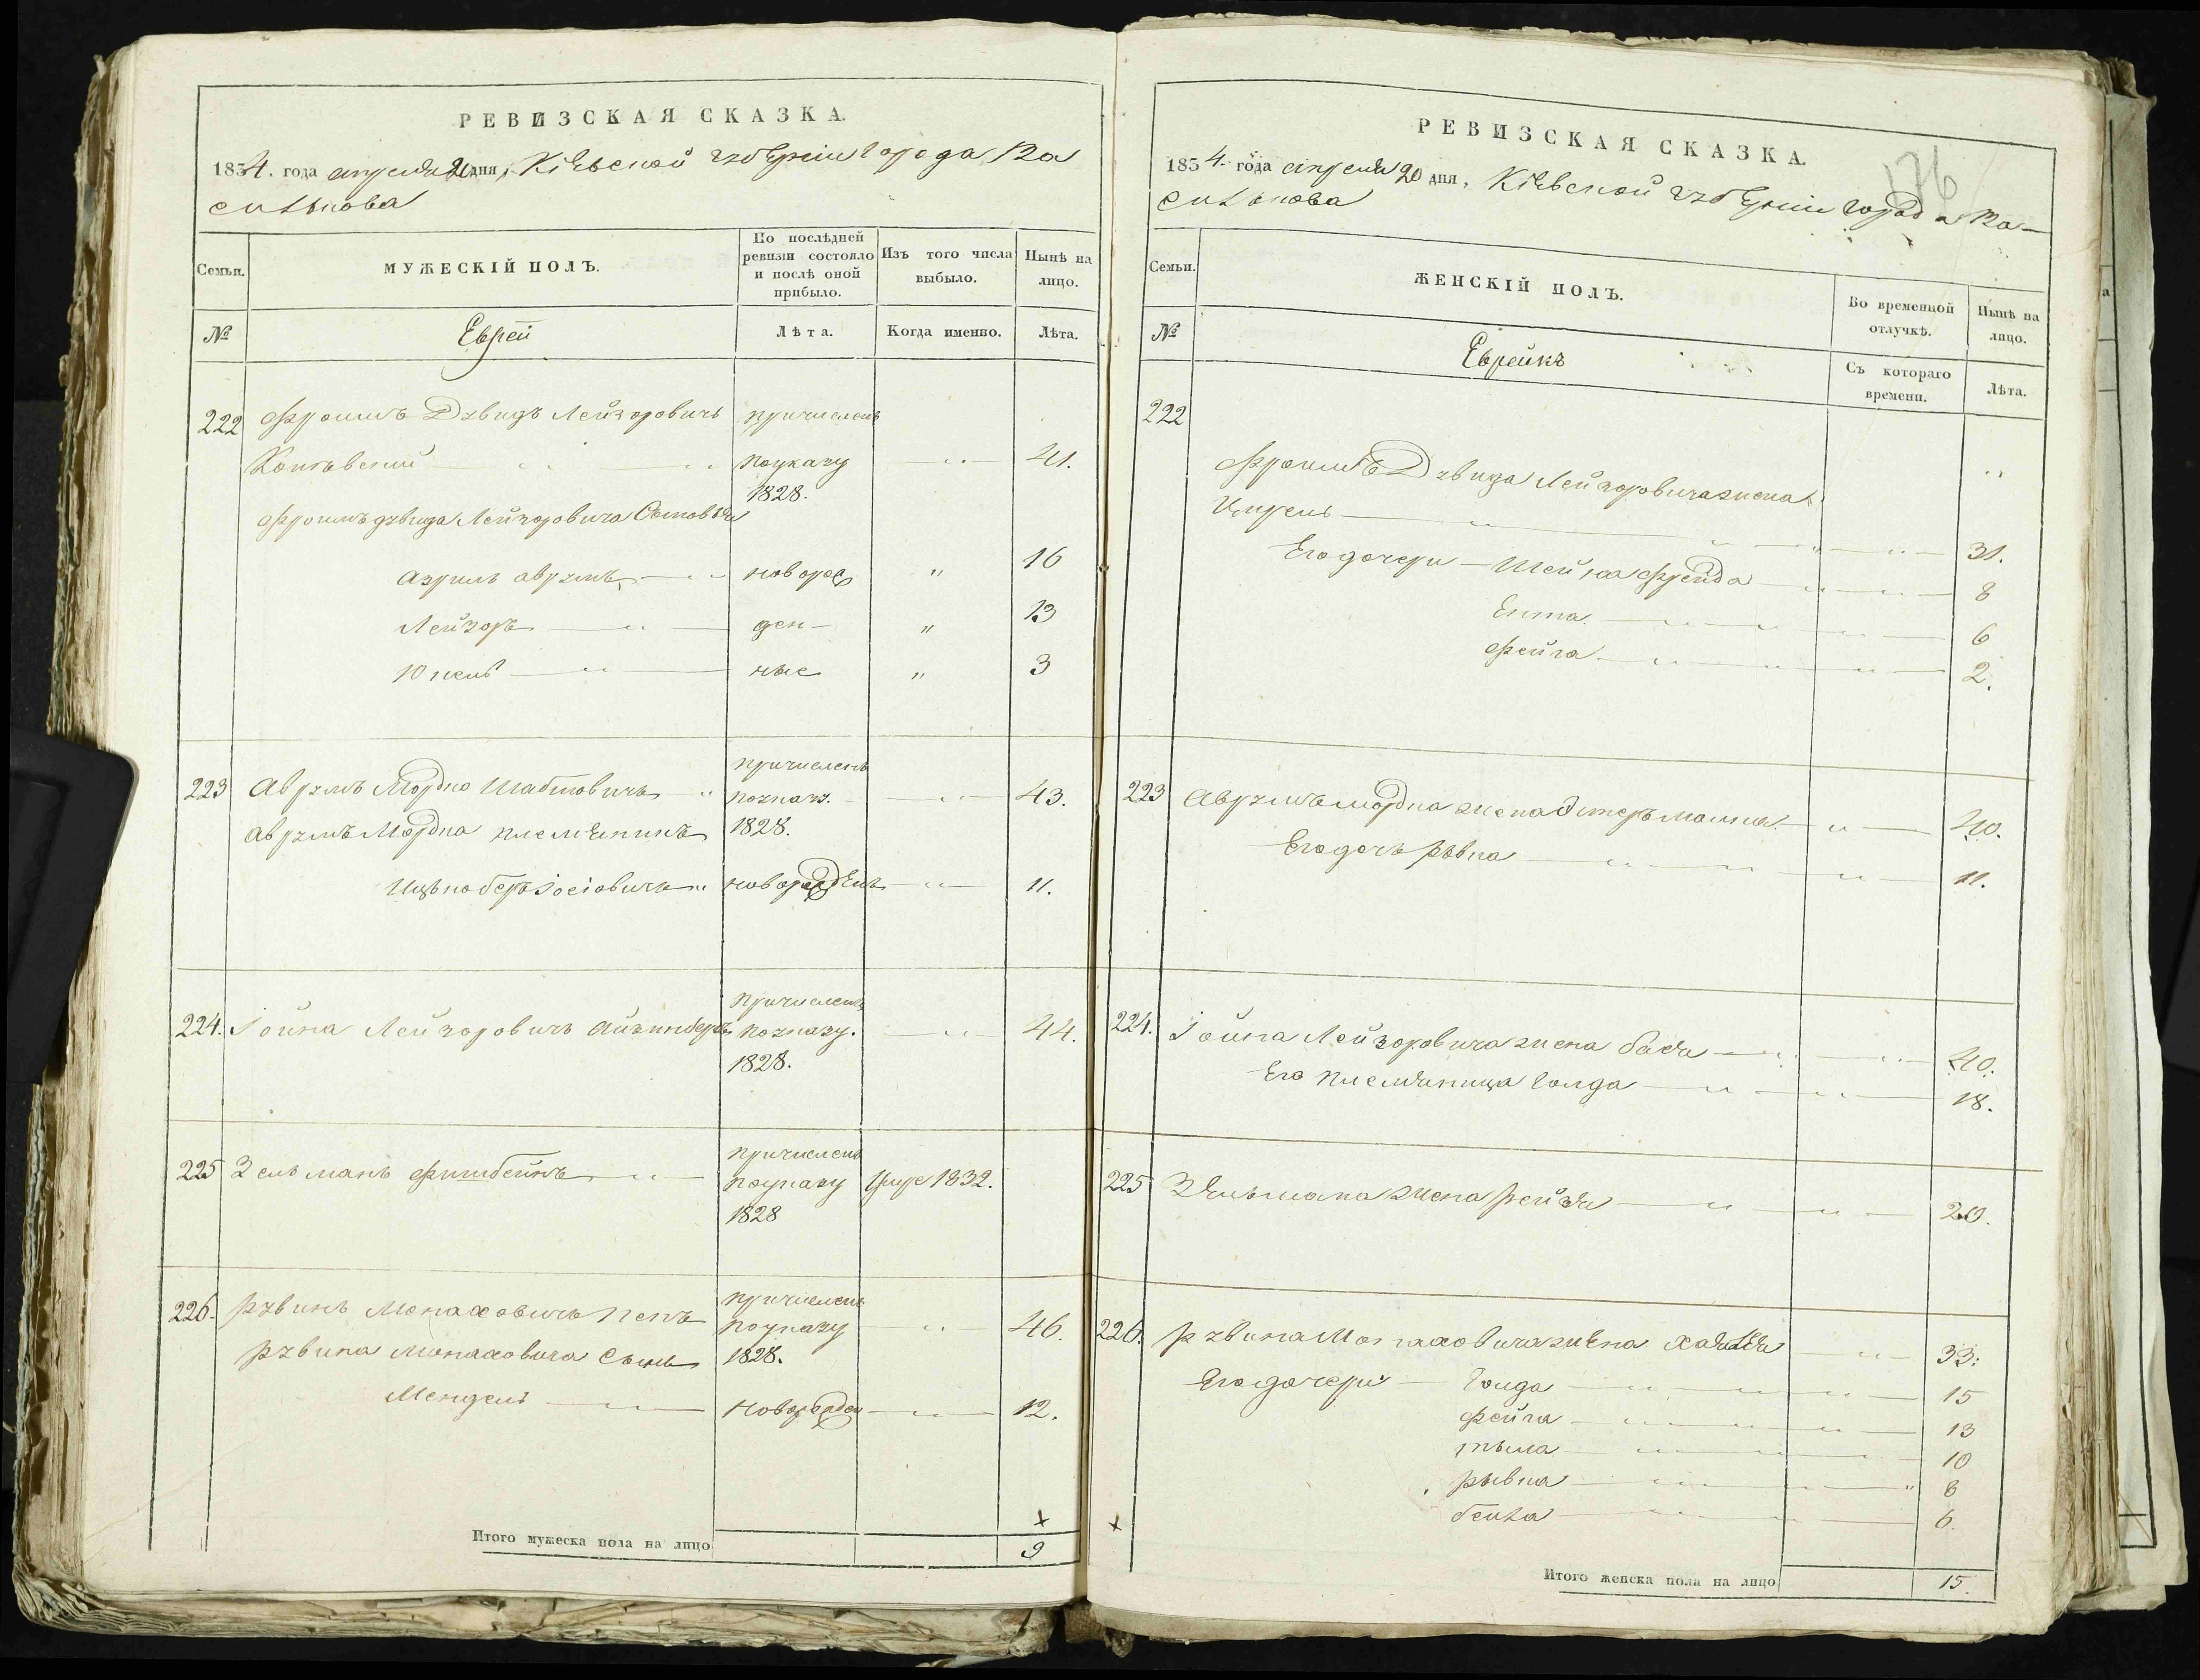 РЕВИЗСКАЯ СКАЗКА.
1834. года апреля 20 дня, Кіевской губерніи города Ва
силькова
Семьи.
МУЖЕСКІЙ ПОЛЪ.
По послѣдней
ревизіи состояло
и послѣ оной
прибыло.
Изъ того числа
выбыло.
Нынѣ на
лицо.
№
Еврей
Лѣта.
Когда именно.
Лѣта.
222 Фроимъ Дувидъ Лейзоровичъ причисленъ
поуказу 41.
1828.
Фроимъ дувида Лейзоровича Сыновья
Азриль аврумъ новорож 16
Лейзоръ ден- 13
Юкель ные 3
причисленъ
223 Аврумъ Мордко Шабтовичъ поуказу. 43.
аврумъ Мордка племѣникъ 1828.
Ицько беръ Іосіовичъ новорожденъ 11.
причисленъ
224. Іойна Лейзоровичъ Айзинберъ поуказу. 44.
1828.
причисленъ
225 Зельманъ Фишбейнъ поуказу Умре 1832.
1828
причисленъ
226. Рувинъ Монаховичъ поуказу 46.
Рувина Монаховича Сынъ 1828.
Мендель новорожден 12.
Итого мужеска пола на лицо 9
РЕВИЗСКАЯ СКАЗКА.
176
1834. года апреля 20 дня, Кіевской губерніи города Ва-
силькова
Семьи.
ЖЕНСКІЙ ПОЛЪ.
Во временной
отлучкѣ.
Нынѣ на
лицо.
№
Еврейкъ
Съ котораго
времени.
Лѣта.
222
Фроимъ Дувида Лейзоровича жена
31.
Его дочери - Шейна фрейда 8
Ента 6
Фейга 2.
223 Аврумъ мордка жена Эстеръ малка 40.
Его дочь Рывка 11.
224. Іойна Лейзоровича жена бася 40.
Его племяница Голда 18.
225 Зельмана жена Рейзя 20.
226. Рувина Монаховича жена 33.
Его дочери - Голда 15
Фейга 13
13
10
Рывка 8
бейла 6.
Итого женска пола на лицо 15.